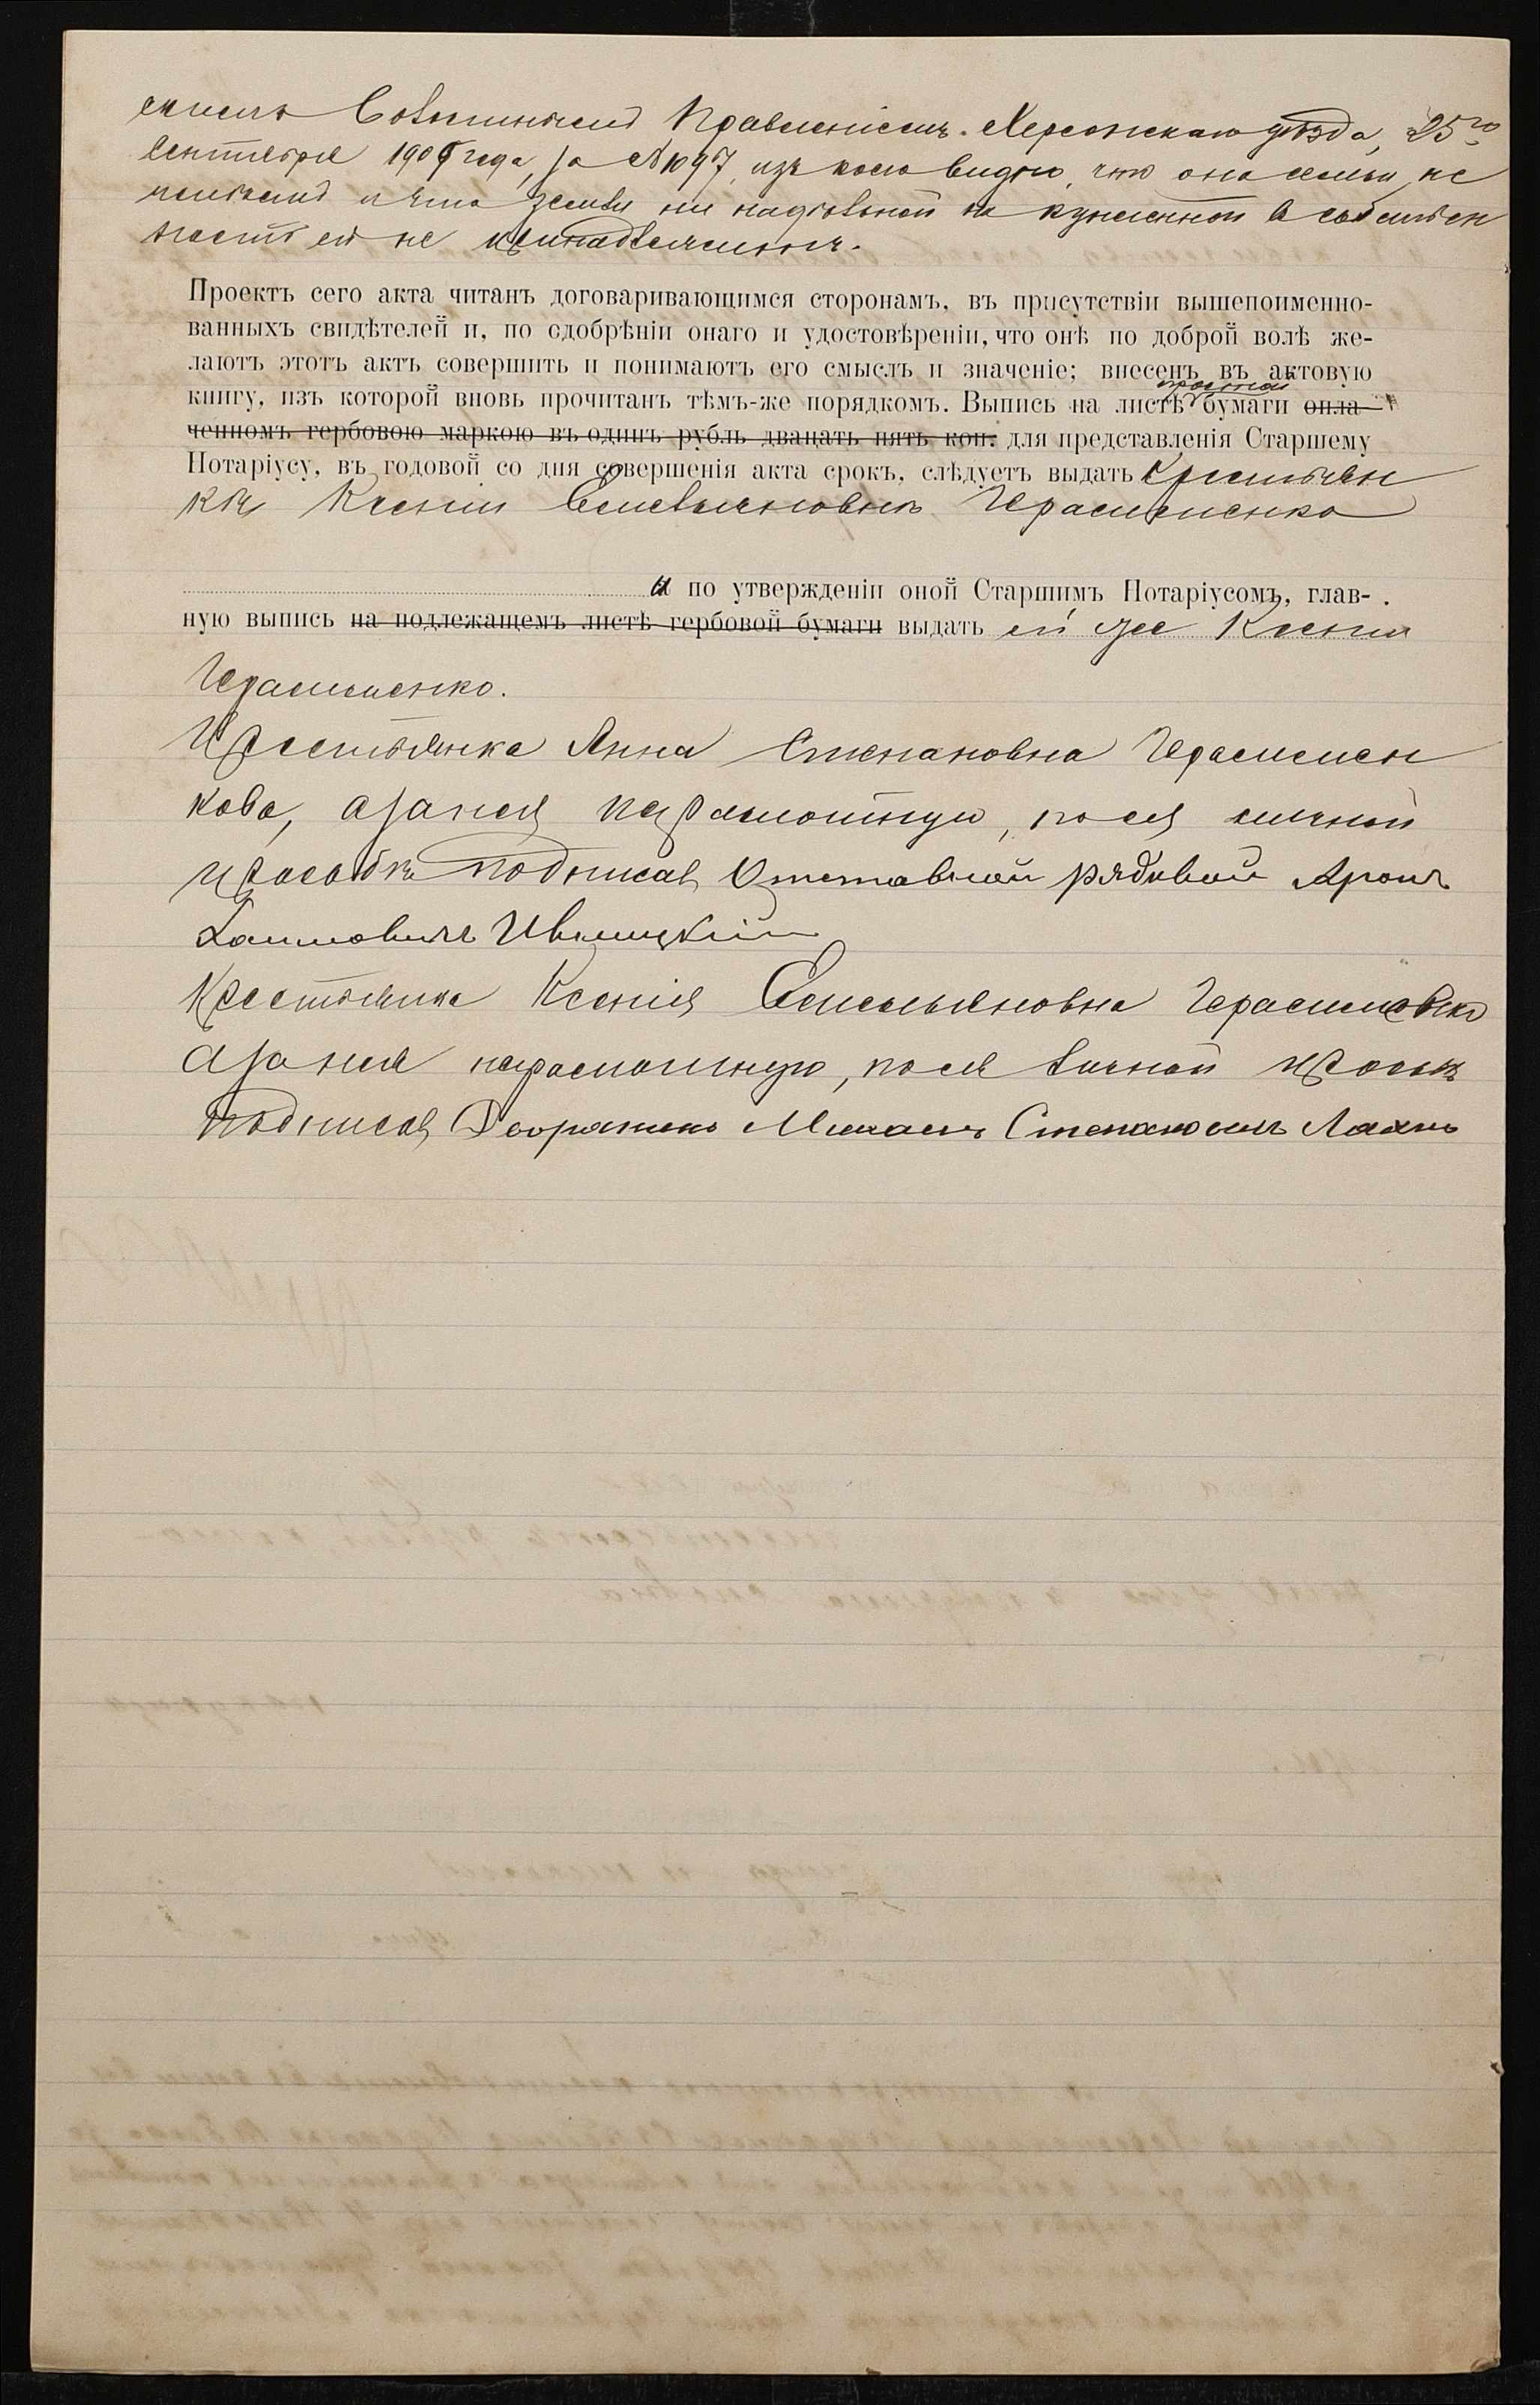 Правленіемъ. Херсонскаго уѣзда, 25го
Сентября 190 года, за № 1097, изъ коего видно, что она семьи не
земли ни надѣльной ни купленной в собствен
ности ей не принадлежитъ.
Проектъ сего акта читанъ договаривающимся сторонамъ, въ присутствіи вышепоименно-
ванныхъ свидѣтелей и, по одобрѣніи онаго и удостовѣреніи, что онѣ по доброй волѣ же-
лаютъ этотъ актъ совершить и понимаютъ его смыслъ и значеніе; внесенъ въ актовую
книгу, изъ которой вновь прочитанъ тѣмъ-же порядкомъ. Выпись на листѣ простой бумаги опла-
ченномъ гербовою маркою въ одинъ рубль двацать пять коп. для представленія Старшему
Нотаріусу, въ годовой со дня совершенія акта срокъ, слѣдуетъ выдать Крестьян
кѣ Ксеніи Емельяновнѣ Герасименко
и по утвержденіи оной Старшимъ Нотаріусомъ, глав-
ную выпись на подлежащемъ листѣ гербовой бумаги выдать ей же Ксеніи
Герасименко.
Крестьянка Анна Степановна Герасимен
кова, а за нея неграмотную, по ея личной
просьбѣ подписалъ Отставной рядовой Аронъ
Хаимовичъ
Крестьянка Ксенія Емельяновна Герасименко
а за нея неграмотную, по ея личной просьбѣ
подписалъ Дворянинъ Михаилъ Степановичъ